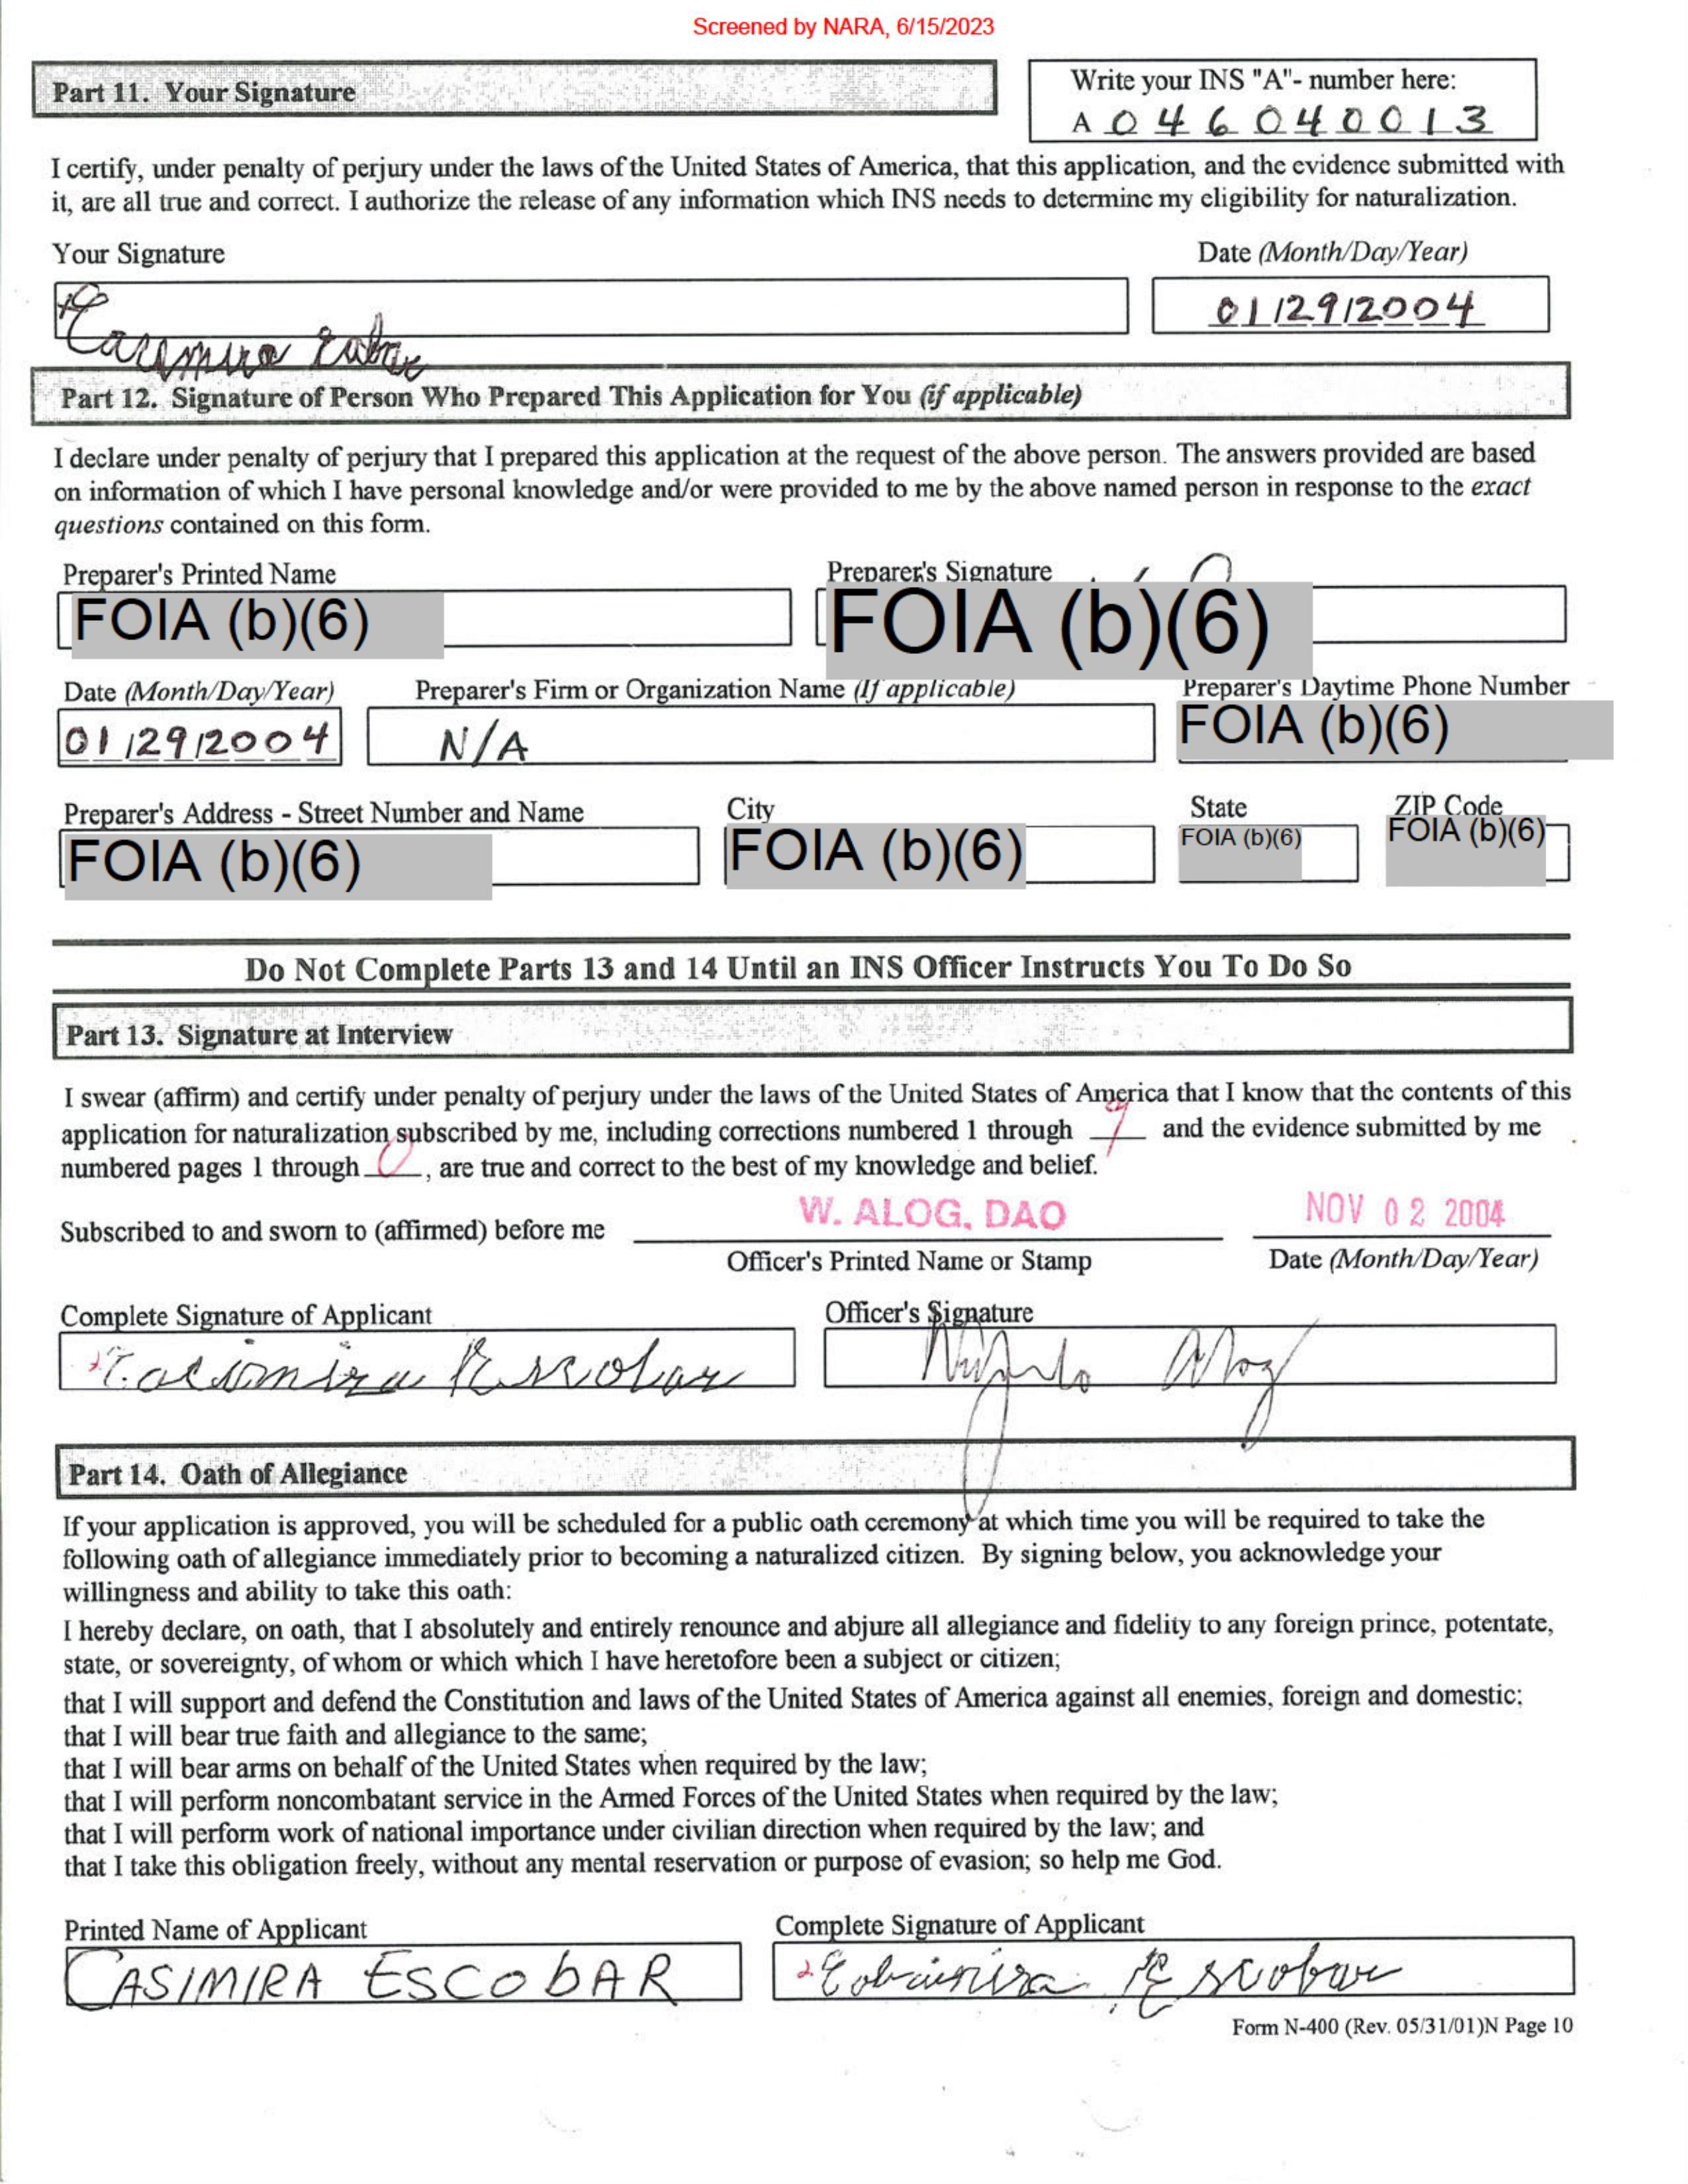 Screened by NARA, 6/15/2023
Part 11. Your Signature
Write your INS "A"- number here:
A 046040013
I certify, under penalty of perjury under the laws of the United States of America, that this application, and the evidence submitted with
it, are all true and correct. I authorize the release of any information which INS needs to determine my eligibility for naturalization.
Your Signature
Date (Month/Day/Year)
Casimira
01/29/2004
Part 12. Signature of Person Who Prepared This Application for You (if applicable)
I declare under penalty of perjury that I prepared this application at the request of the above person. The answers provided are based
on information of which I have personal knowledge and/or were provided to me by the above named person in response to the exact
questions contained on this form.
Preparer's Printed Name
Preparer's Signature
FOIA (b)(6)
FOIA (b)(6)
Date (Month/Day/Year)
Preparer's Firm or Organization Name (If applicable)
Preparer's Daytime Phone Number
01/29/2004
N/A
FOIA (b)(6)
Preparer's Address - Street Number and Name
City
State
ZIP Code
FOIA (b)(6)
FOIA (b)(6)
FOIA (b)(6)
FOIA (b)(6)
Do Not Complete Parts 13 and 14 Until an INS Officer Instructs You To Do So
Part 13. Signature at Interview
I swear (affirm) and certify under penalty of perjury under the laws of the United States of America that I know that the contents of this
application for naturalization subscribed by me, including corrections numbered 1 through 9 and the evidence submitted by me
numbered pages 1 through 0, are true and correct to the best of my knowledge and belief.
Subscribed to and sworn to (affirmed) before me
W. ALOG, DAO
NOV 02 2004
Officer's Printed Name or Stamp
Date (Month/Day/Year)
Complete Signature of Applicant
Officer's Signature
Casimira Escobar
Alog
Part 14. Oath of Allegiance
If your application is approved, you will be scheduled for a public oath ceremony at which time you will be required to take the
following oath of allegiance immediately prior to becoming a naturalized citizen. By signing below, you acknowledge your
willingness and ability to take this oath:
I hereby declare, on oath, that I absolutely and entirely renounce and abjure all allegiance and fidelity to any foreign prince, potentate,
state, or sovereignty, of whom or which which I have heretofore been a subject or citizen;
that I will support and defend the Constitution and laws of the United States of America against all enemies, foreign and domestic;
that I will bear true faith and allegiance to the same;
that I will bear arms on behalf of the United States when required by the law;
that I will perform noncombatant service in the Armed Forces of the United States when required by the law;
that I will perform work of national importance under civilian direction when required by the law; and
that I take this obligation freely, without any mental reservation or purpose of evasion; so help me God.
Printed Name of Applicant
Complete Signature of Applicant
CASIMIRA ESCObAR
Escobar
Form N-400 (Rev. 05/31/01)N Page 10